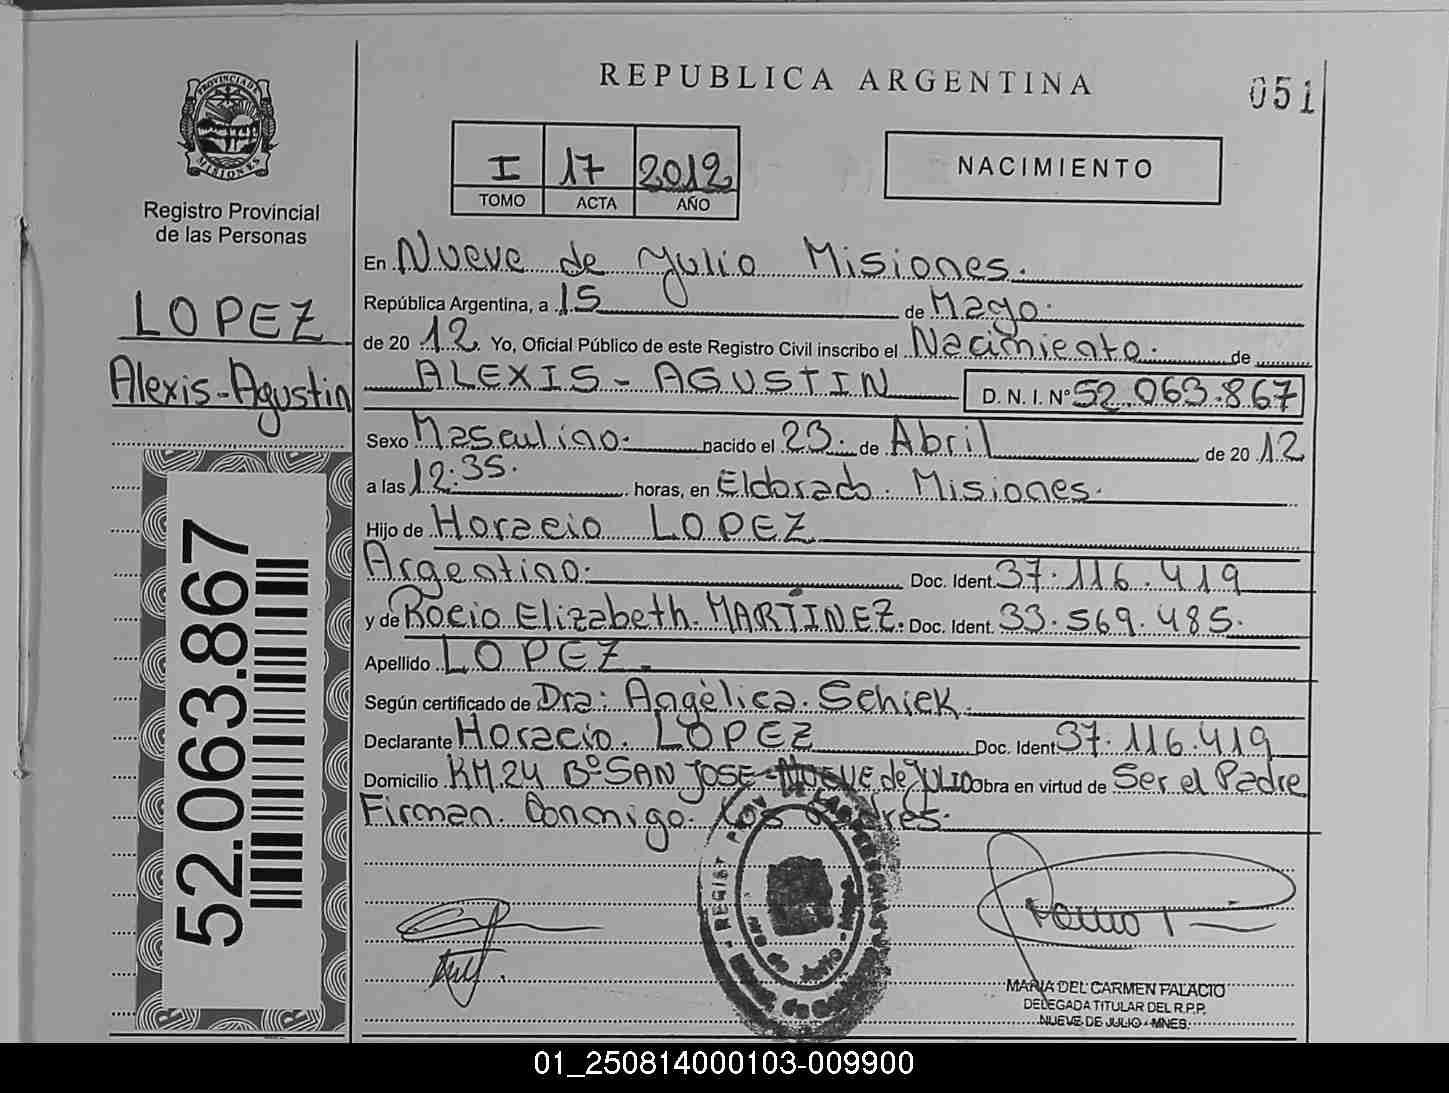 REPUBLICA ARGENTINA
051
PROVINCIA DE
MISIONES
Registro Provincial
de las Personas
I 17 2012
TOMO ACTA AÑO
NACIMIENTO
LOPEZ
Alexis-Agustin
52.063.867
En Nueve de Julio Misiones.
República Argentina, a 15 de Mayo.
de 2012. Yo, Oficial Público de este Registro Civil inscribo el Nacimiento. de
ALEXIS - AGUSTIN D. N. I. Nº 52.063.867
Sexo Masculino. nacido el 23. de Abril de 2012
a las 12:35. horas, en Eldorado. Misiones.
Hijo de Horacio LOPEZ
Argentino. Doc. Ident. 37.116.419
y de Rocio Elizabeth. MARTÍNEZ. Doc. Ident. 33.569.485.
Apellido LOPEZ.
Según certificado de Dra: Angèlica. Schiek.
Declarante Horacio. LOPEZ Doc. Ident. 37.116.419
Domicilio KM.24 Bº SAN JOSE-NUEVE de JULIO Obra en virtud de Ser el Padre
Firman. Conmigo. Los Padres.
MARIA DEL CARMEN PALACIO
DELEGADA TITULAR DEL R.P.P.
NUEVE DE JULIO - MNES.
01_250814000103-009900